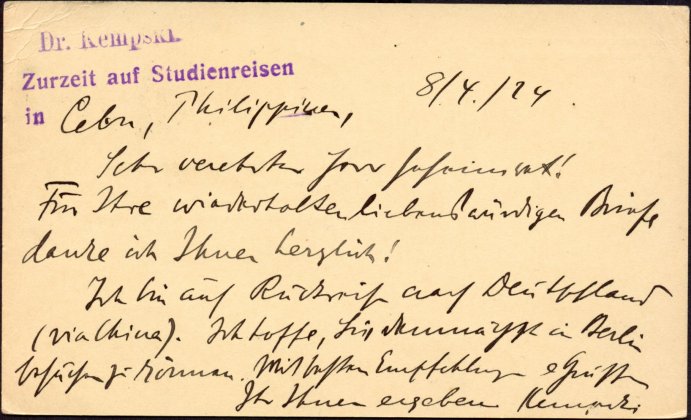 Dr. Kempski.
Zurzeit auf Studienreisen
in Cebu, Philippinen, 8/4./24.
Sehr verehrter Herr Geheimrat!
Für Ihre wiederholten liebenswürdigen Briefe
danke ich Ihnen herzlich!
Ich bin auf Rückreise nach Deutschland
(via China). Ich hoffe, Sie demnächst in Berlin
besuchen zu können. Mit besten Empfehlungen & Grüßen
Ihr Ihnen ergeben Kempski